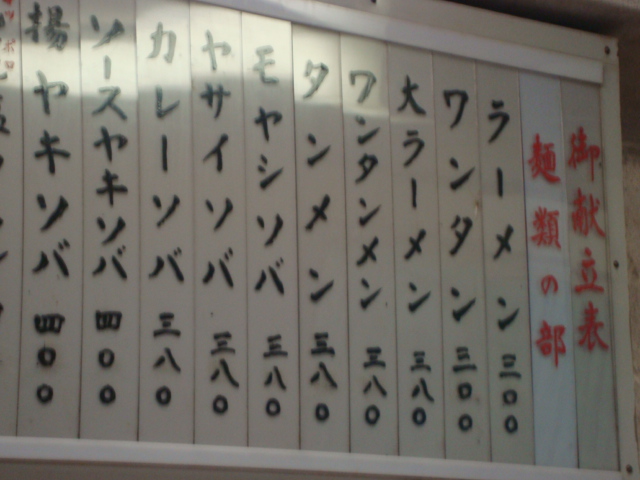 御献立表
麺類の部
ラーメン 三〇〇
ワンタン 三〇〇
大ラーメン 三八〇
ワンタンメン 三八〇
タンメン 三八〇
モヤシソバ 三八〇
ヤサイソバ 三八〇
カレーソバ 三八〇
ソースヤキソバ 四〇〇
揚ヤキソバ 四〇〇